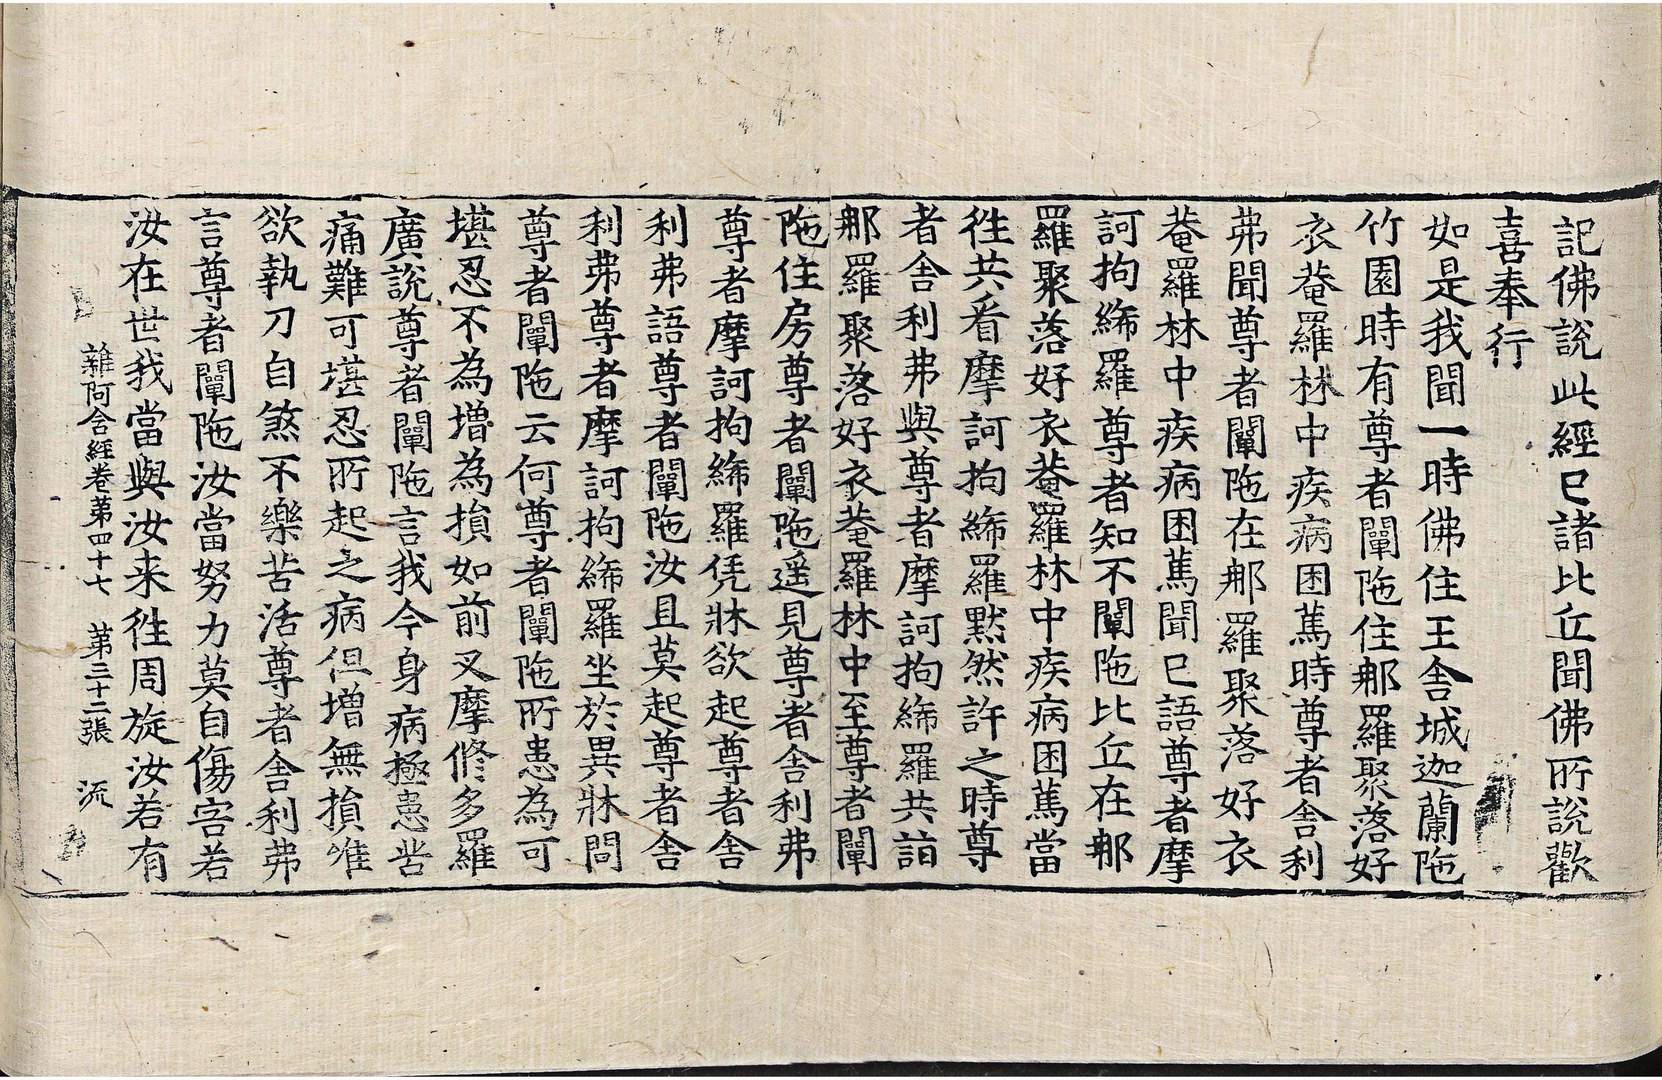 記佛說此經已諸比丘聞佛所說歡
喜奉行
如是我聞一時佛住王舍城迦蘭陁
竹園時有尊者闡陁住郍羅聚落好
衣菴羅林中疾病困篤時尊者舍利
弗聞尊者闡陁在郍羅聚落好衣
菴羅林中疾病困篤聞已語尊者摩
訶拘絺羅尊者知不闡陁比丘在郍
羅聚落好衣菴羅林中疾病困篤當
徃共看摩訶拘絺羅黙然許之時尊
者舍利弗與尊者摩訶拘絺羅共詣
郍羅聚落好衣菴羅林中至尊者闡
陁住房尊者闡陁遥見尊者舍利弗
尊者摩訶拘絺羅凭牀欲起尊者舍
利弗語尊者闡陁汝且莫起尊者舍
利弗尊者摩訶拘絺羅坐於異牀問
尊者闡陁云何尊者闡陁所患為可
堪忍不為增為損如前叉摩修多羅
廣說尊者闡陁言我今身病極患苦
痛難可堪忍所起之病但增無損唯
欲執刀自煞不樂苦活尊者舍利弗
言尊者闡陁汝當努力莫自傷害若
汝在世我當與汝来徃周旋汝若有
雜阿含經卷第四十七 第三十二張 流